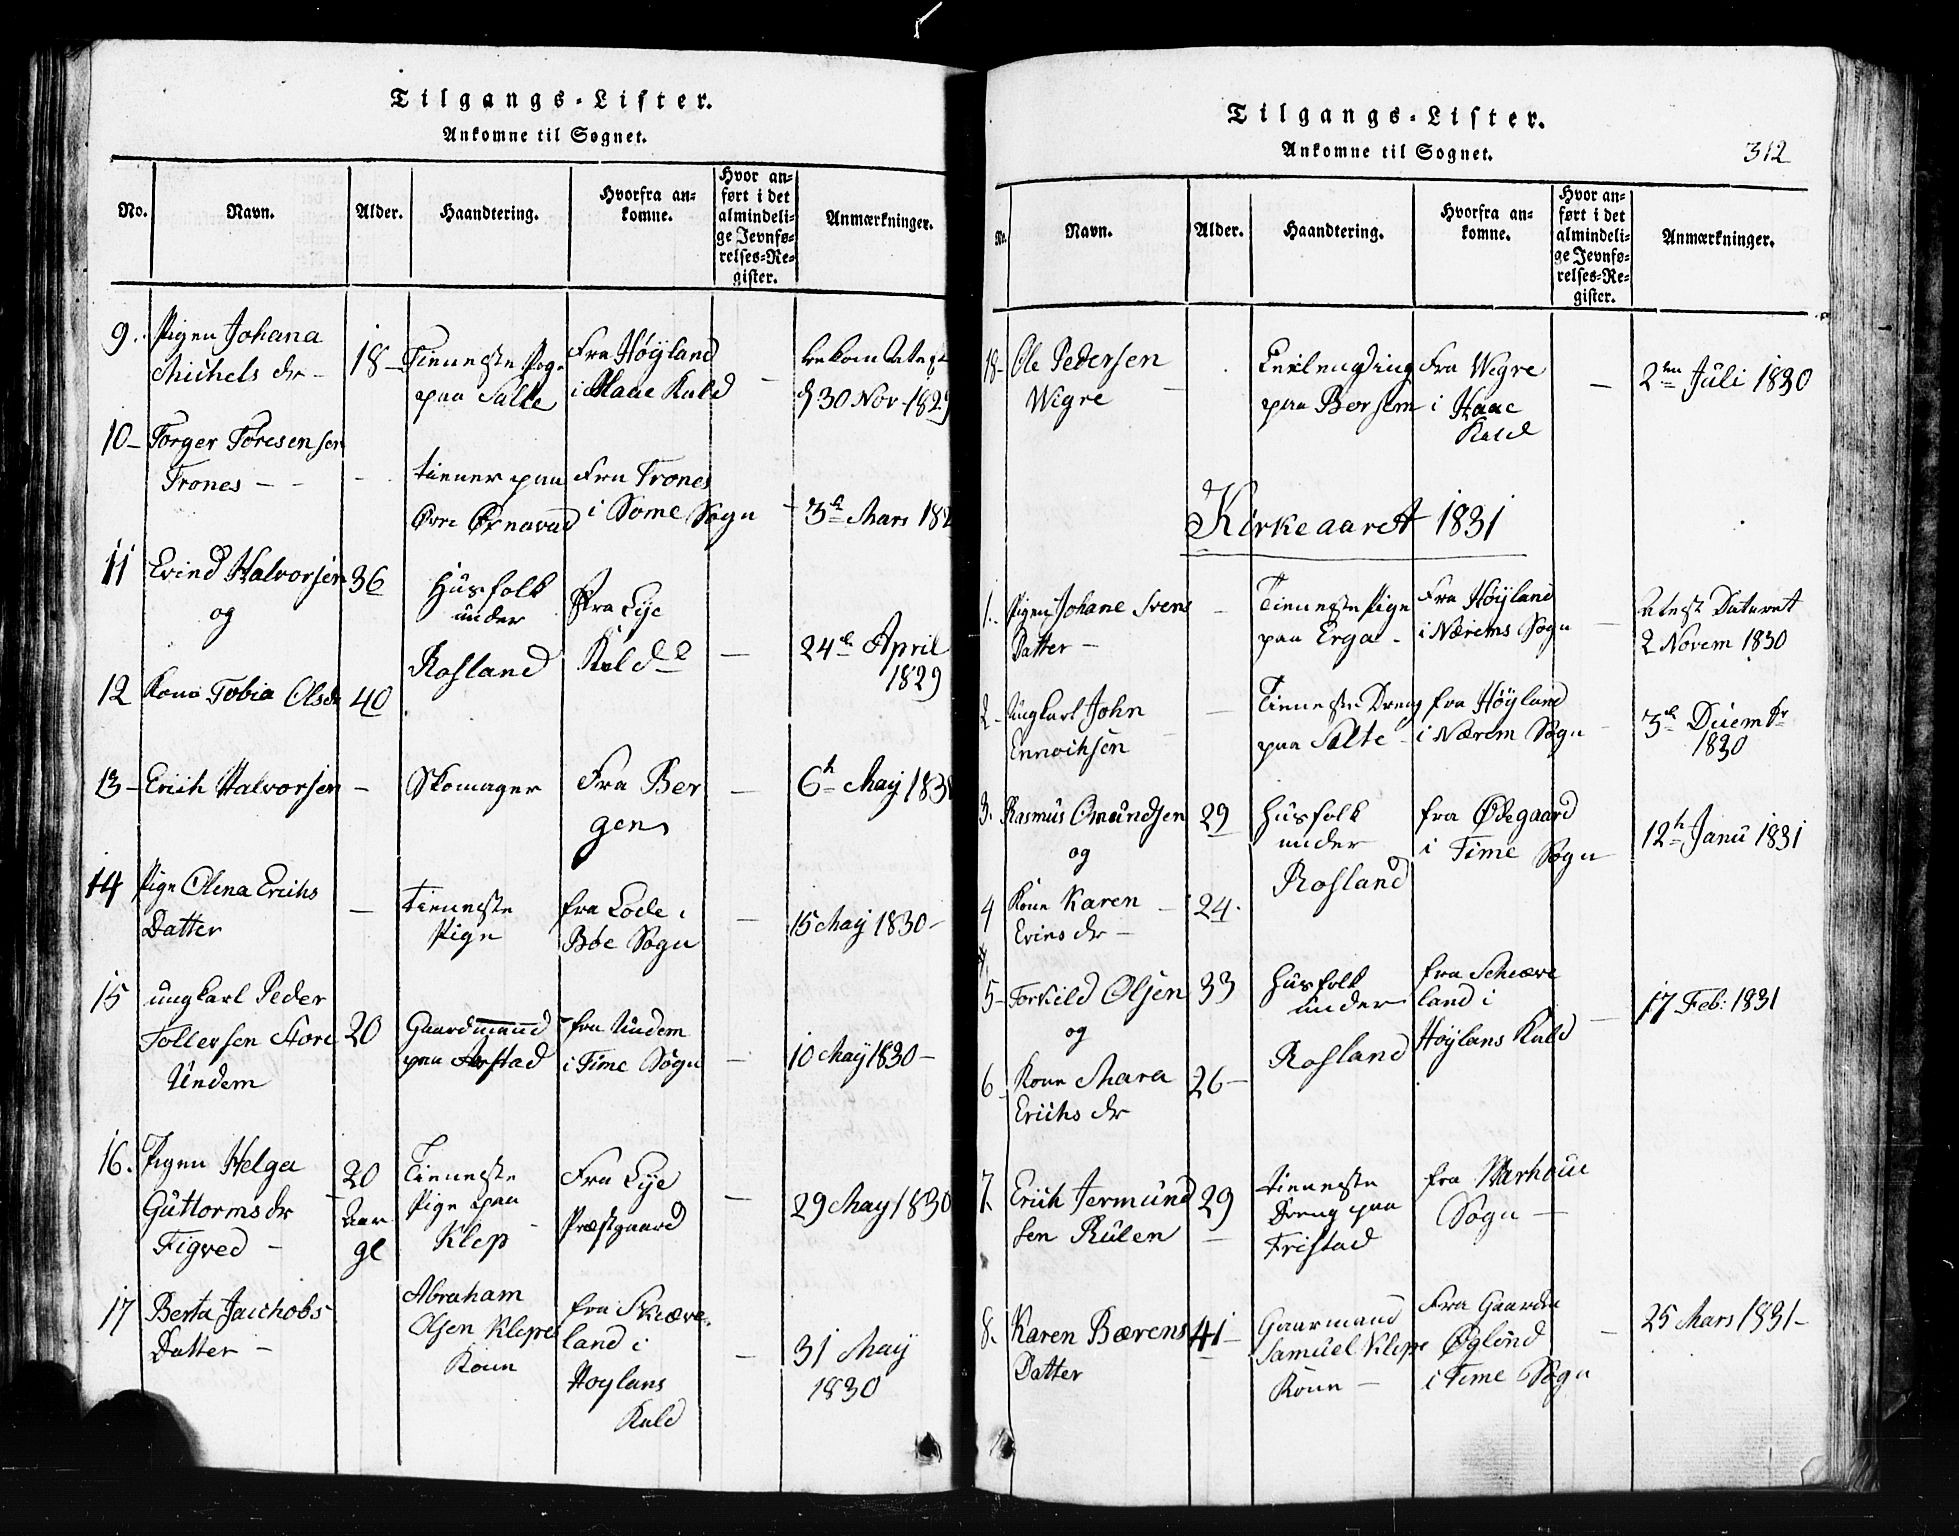 Tilgangs-Lister.
Ankomne til Sognet.
No.
Navn.
Alder.
Haandtering.
Hvorfra an-
komne.
Hvor an-
ført i det
almindeli-
ge Jevnfø-
relses-Re-
gister.
Anmærkninger.
9. Pigen Johana
Michels dr -
18 -
Tieneste Pige
paa Salte
Fra Høÿland
i Haae Kald
-
d 30 Nov. 1829
10 - Torger Toresensen
Trones - -
-
tiener paa
Øvre Øxnavad
Fra Trones
i Some Sogn
-
3de Mars 182
11 Evind Halvorsen
og
36
Huusfolk
under
Rosland
Fra Lÿe
Kald
-
24de April
1829
12 Kone Tobia Olsdr
40
13 - Erich Halvorsen
-
Skomager
Fra Ber
gen
-
6te Maÿ 183
14 Pige Olena Erichs
Datter
-
Tieneste
Pige
fra Lode i
Bøe Sogn
-
15 Maÿ 1830 -
15 ungkarl Peder
Tollersen Store
Undem
20
Gaardmand
paa Aarstad
fra Undem
i Time Sogn
-
10 Maÿ 1830 -
16. Pigen Helga
Guttormsdr
Tigved -
20
Aar
gl
Tieneste
Pige paa
Klep
Fra Lÿe
Præstgaard
-
29 Maÿ 1830
17 Berta Jachobs
Datter -
Abraham
Olsen Klepes
Kone
fra Skiæve
land i
Hoÿlans
Kald
-
31 Maÿ
1830
Tilgangs-Lister.
Ankomne til Sognet.
312
Nr.
Navn.
Alder.
Haandtering.
Hvorfra an-
komne.
Hvor an-
ført i det
almindeli-
ge Jevnfø-
relses-Re-
gister.
Anmærkninger.
18 - Ole Pedersen
Wigre
paa Borsem
Fra Wigre
i Haae
Kald
-
2den Juli 1830
Kirkeaaret 1831
1. Pigen Johane Svens
Datter -
-
Tieneste Pige
paa Erga -
Fra Høÿland
i Nærems Sogn
-
Attest Dateret
2 Novem 1830
2 - Ungkarl John
Ennochsen
-
Tieneste Dreng
paa Salte -
fra Høÿland
i Nærem Sogn
-
3de Decembr
1830
3. Rasmus Omundsen
og
29
Huusfolk
under
Rosland
fra Ødegaard
i Time Sogn
12te Janu 1831
4 Kone Karen
Evinsdr -
24.
5 - Torkild Olsen
og
33
Huusfolk
under
Rosland
fra Schæve
land i
Høÿlans Kald
-
17 Feb: 1831
6 Kone Mara
Erichsdr
26 -
7. Erich Jermund
sen Rulen
29
tieneste
Dreng paa
Tristad
fra Warhoue
Sogn -
8. Karen Bærens
Datter
41 -
Gaarmand
Samuel Klepe
Kone -
Fra Gaarden
Øglend
i Time Sogn
-
25 Mars 1831 -